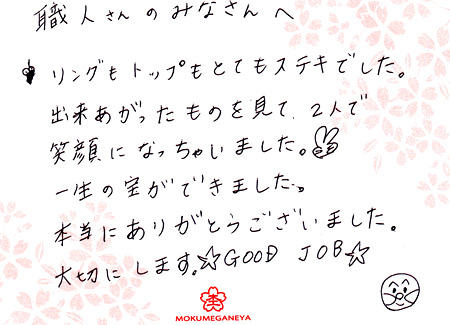 職人さんのみなさんへ
リングもトップもとてもステキでした。
出来あがったものを見て、2人で
笑顔になっちゃいました。
一生の宝ができました。
本当にありがとうございました。
大切にします。☆GOOD JOB☆
MOKUMEGANEYA